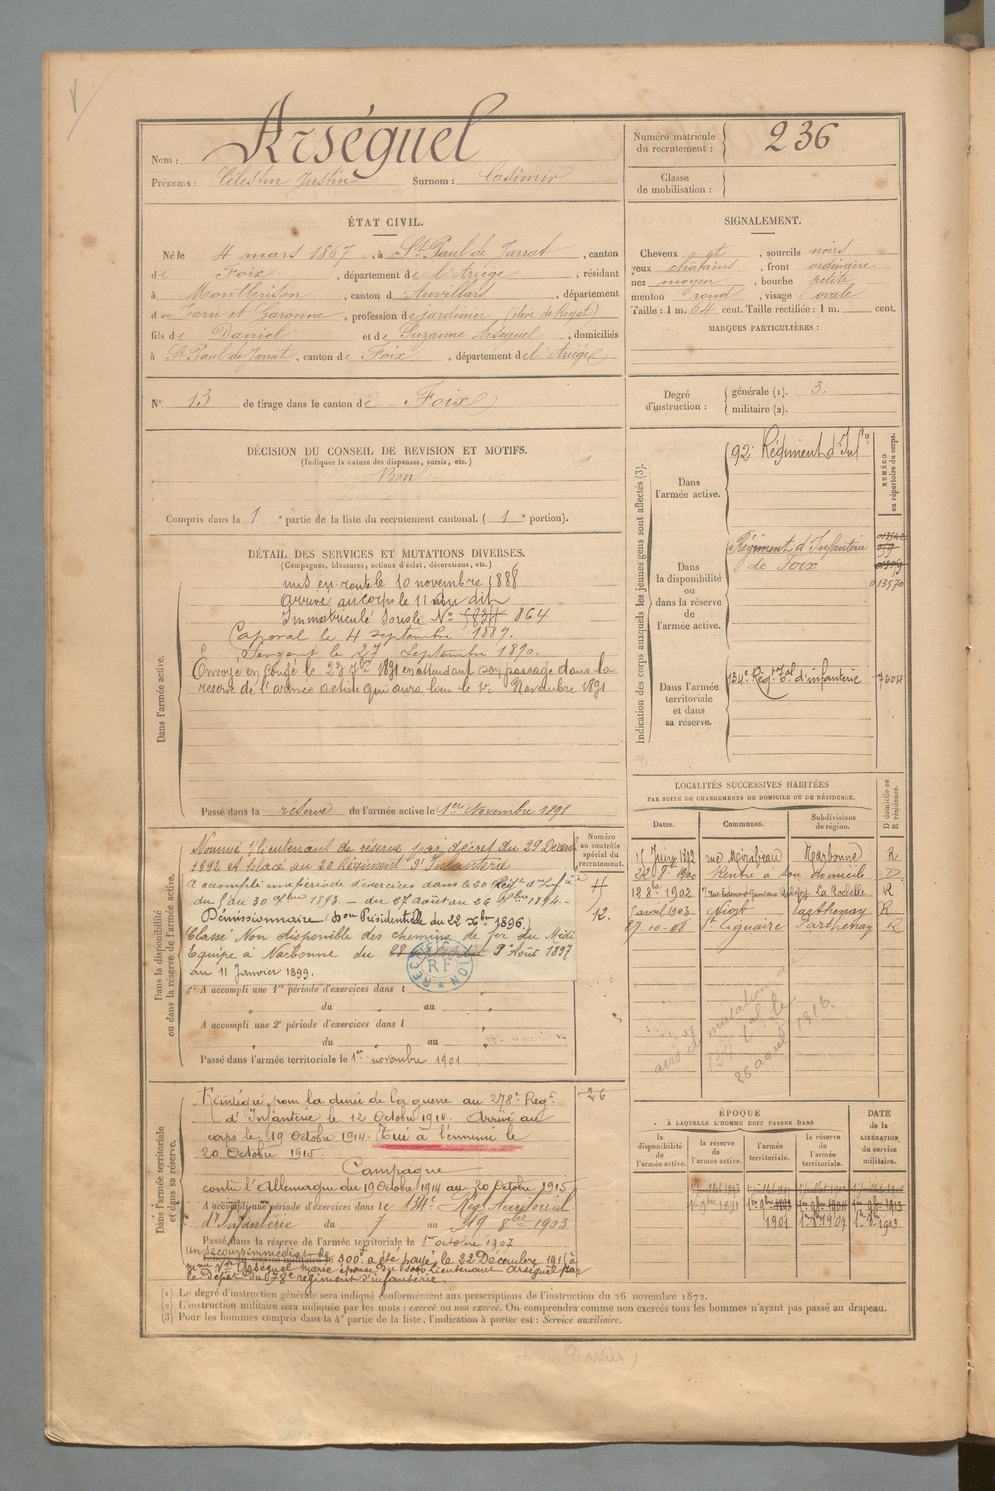 Nom : Arséguel
Prénoms : Célestin Justin Surnom : Casimir
Numéro matricule du recrutement : 236
Classe de mobilisation :
ÉTAT CIVIL.
Né le 4 mars 1867, à St Paul de Jarrat, canton
de Foix, département de l'Ariège, résidant
à Montbrison, canton d'Auvillars, département
du Tarn et Garonne, profession de jardinier (élève de Royat)
fils de Daniel et de Suzanne Arséguel, domiciliés
à St Paul de Jarrat, canton de Foix, département de l'Ariège
SIGNALEMENT.
Cheveux et, sourcils noirs
yeux châtains, front ordinaire
nez moyen, bouche petite
menton rond, visage ovale
Taille : 1 m. 64 cent. Taille rectifiée : 1 m. cent.
MARQUES PARTICULIÈRES :
No 13 de tirage dans le canton de Foix
Degré d'instruction : générale (1). 3.
militaire (2).
DÉCISION DU CONSEIL DE REVISION ET MOTIFS.
(Indiquer la nature des dispenses, sursis, etc.)
Bon
Compris dans la 1e partie de la liste du recrutement cantonal. (1e portion).
DÉTAIL DES SERVICES ET MUTATIONS DIVERSES.
(Campagnes, blessures, actions d'éclat, décorations, etc.)
Dans l'armée active.
mis en route le 10 novembre 1888
arrivé au corps le 11 du dit
Immatriculé sous le No 864
Caporal le 4 septembre 1889.
Sergent le 27 Septembre 1890.
Envoyé en congé le 23 7bre 1891 en attendant son passage dans la
réserve de l'armée active qui aura lieu le 1er Novembre 1891
Passé dans la réserve de l'armée active le 1er Novembre 1891
Indication des corps auxquels les jeunes gens sont affectés (3).
NUMÉRO au répertoire du corps.
Dans l'armée active.
92e Régiment d'Infie
Dans la disponibilité ou dans la réserve de l'armée active.
Régiment d'Infanterie
de Foix
013570
Dans l'armée territoriale et dans sa réserve.
134e Régt Tal d'infanterie 7604
Dans la disponibilité ou dans la réserve de l'armée active.
Numéro au contrôle spécial du recrutement.
Nommé s/lieutenant de réserve par décret du 29 Décembre
1892 et placé au 20 Régiment d'Infanterie
A accompli une période d'exercices dans le 20 Régt d'Infie
du 5 au 30 1893. — du 27 août au 26 1894.
Démissionnaire (Don Présidentielle du 22 Xbre 1896)
Classé Non disponible des chemins de fer du Midi
Equipe à Narbonne du 9 Août 1897
au 11 Janvier 1899.
RECRUTEMENT RF
A accompli une 1re période d'exercices dans l
du au
A accompli une 2e période d'exercices dans l
du au
Passé dans l'armée territoriale le 1er novembre 1901
LOCALITÉS SUCCESSIVES HABITÉES
PAR SUITE DE CHANGEMENTS DE DOMICILE OU DE RÉSIDENCE.
Dates. Communes. Subdivisions de région. D domicile ou R résidence.
15 1892 rue Mirabeau Narbonne R
22 1900 Rentré à son domicile D
12 8bre 1902 Rochefort La Rochelle R
5 avril 1903 Niort Parthenay R
27-10-08 St Liguaire Parthenay R
avis de mutation
134 tal le
26 avril 1916.
Dans l'armée territoriale et dans sa réserve.
26
Réintégré pour la durée de la guerre au 278e Régt
d'Infanterie le 12 Octobre 1914. Arrivé au
corps le 19 Octobre 1914. Tué à l'ennemi le
20 Octobre 1915.
Campagne
contre l'Allemagne du 19 Octobre 1914 au 20 Octobre 1915
A accompli une période d'exercices dans le 134e Régt territorial
d'Infanterie du 7 au 19 8bre 1903
Passé dans la réserve de l'armée territoriale le 1er octobre 1907
un secours immédiat de 300f a été payé, le 22 Décembre 1915 à
Mme Vve Arséguel Marie épouse du sous Lieutenant Arséguel par
le dépôt du 78e régiment d'infanterie.
ÉPOQUE
A LAQUELLE L'HOMME DOIT PASSER DANS
la disponibilité de l'armée active. la réserve de l'armée active. l'armée territoriale. la réserve de l'armée territoriale.
DATE de la LIBÉRATION du service militaire.
1er 9bre 1891 1er 9bre 1901 1er 1907 1er 1913
(1) Le degré d'instruction générale sera indiqué conformément aux prescriptions de l'instruction du 26 novembre 1872.
(2) L'instruction militaire sera indiquée par les mots : exercé ou non exercé. On comprendra comme non exercés tous les hommes n'ayant pas passé au drapeau.
(3) Pour les hommes compris dans la 4e partie de la liste, l'indication à porter est : Service auxiliaire.